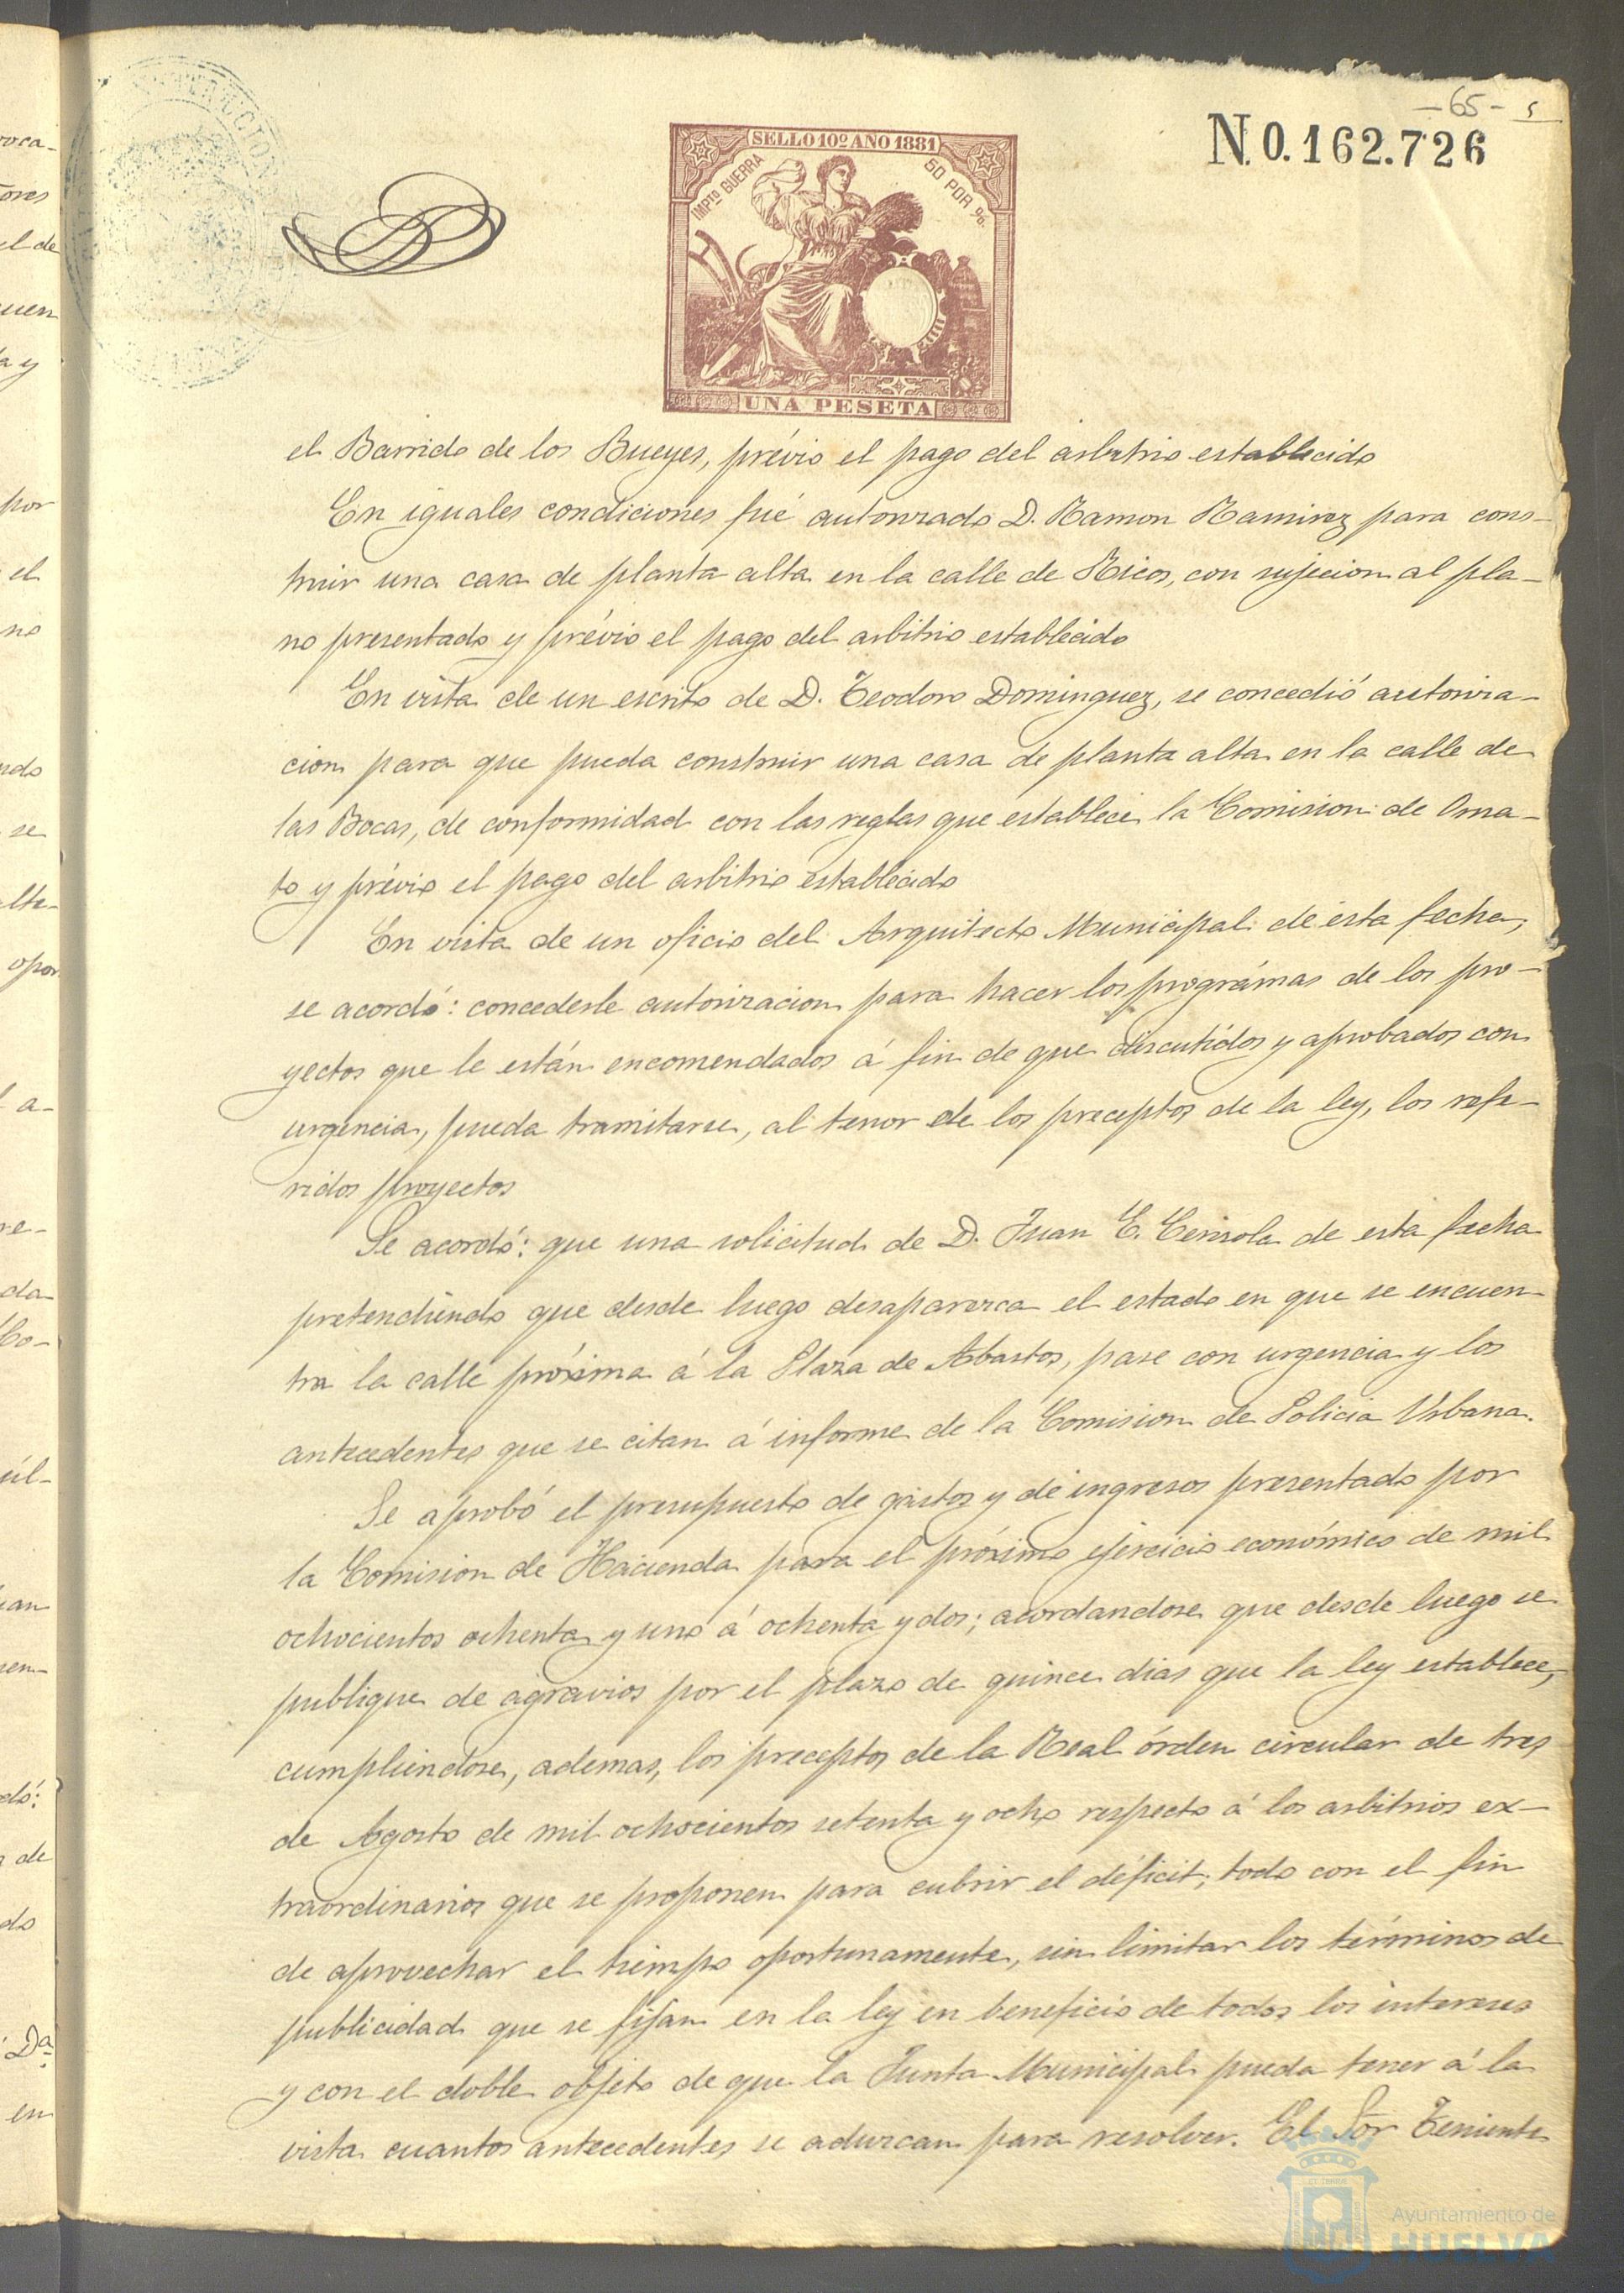 -65- 5
N.0.162.726
SELLO 10º AÑO 1881
IMPTO GUERRA
50 POR %
UNA PESETA
el Barrido de los Bueyes, prévio el pago del arbitrio establecido
En iguales condiciones fué autorizado D. Ramon Ramirez para cons-
truir una casa de planta alta en la calle de Ricos, con sujecion al pla-
no presentado y prévio el pago del arbitrio establecido
En vista de un escrito de D. Teodoro Dominguez, se concedió autoriza-
cion para que pueda construir una casa de planta alta en la calle de
las Bocas, de conformidad con las reglas que establece la Comision de Orna-
to y prévio el pago del arbitrio establecido
En vista de un oficio del Arquitecto Municipal de esta fecha,
se acordó: concederle autorizacion para hacer los prográmas de los pro-
yectos que le están encomendados á fin de que discutidos y aprobados con
urgencia, pueda tramitarse, al tenor de los preceptos de la ley, los refe-
ridos proyectos
Se acordó: que una solicitud de D. Juan E. Cerisola de esta fecha
pretendiendo que desde luego desaparezca el estado en que se encuen-
tra la calle próxima á la Plaza de Abastos, pase con urgencia y los
antecedentes que se citan á informe de la Comision de Policia Urbana.
Se aprobó el presupuesto de gastos y de ingresos presentado por
la Comision de Hacienda para el próximo ejercicio económico de mil
ochocientos ochenta y uno á ochenta y dos; acordandose que desde luego se
publique de agravios por el plazo de quince dias que la ley establece,
cumpliendose, ademas, los preceptos de la Real órden circular de tres
de Agosto de mil ochocientos setenta y ocho respecto á los arbitrios ex-
traordinarios que se proponen para cubrir el déficit; todo con el fin
de aprovechar el tiempo oportunamente, sin limitar los términos de
publicidad que se fijan en la ley en beneficio de todos los intereses
y con el doble objeto de que la Junta Municipal pueda tener á la
vista cuantos antecedentes se aduzcan para resolver. El Sor Teniente
Ayuntamiento de
HUELVA